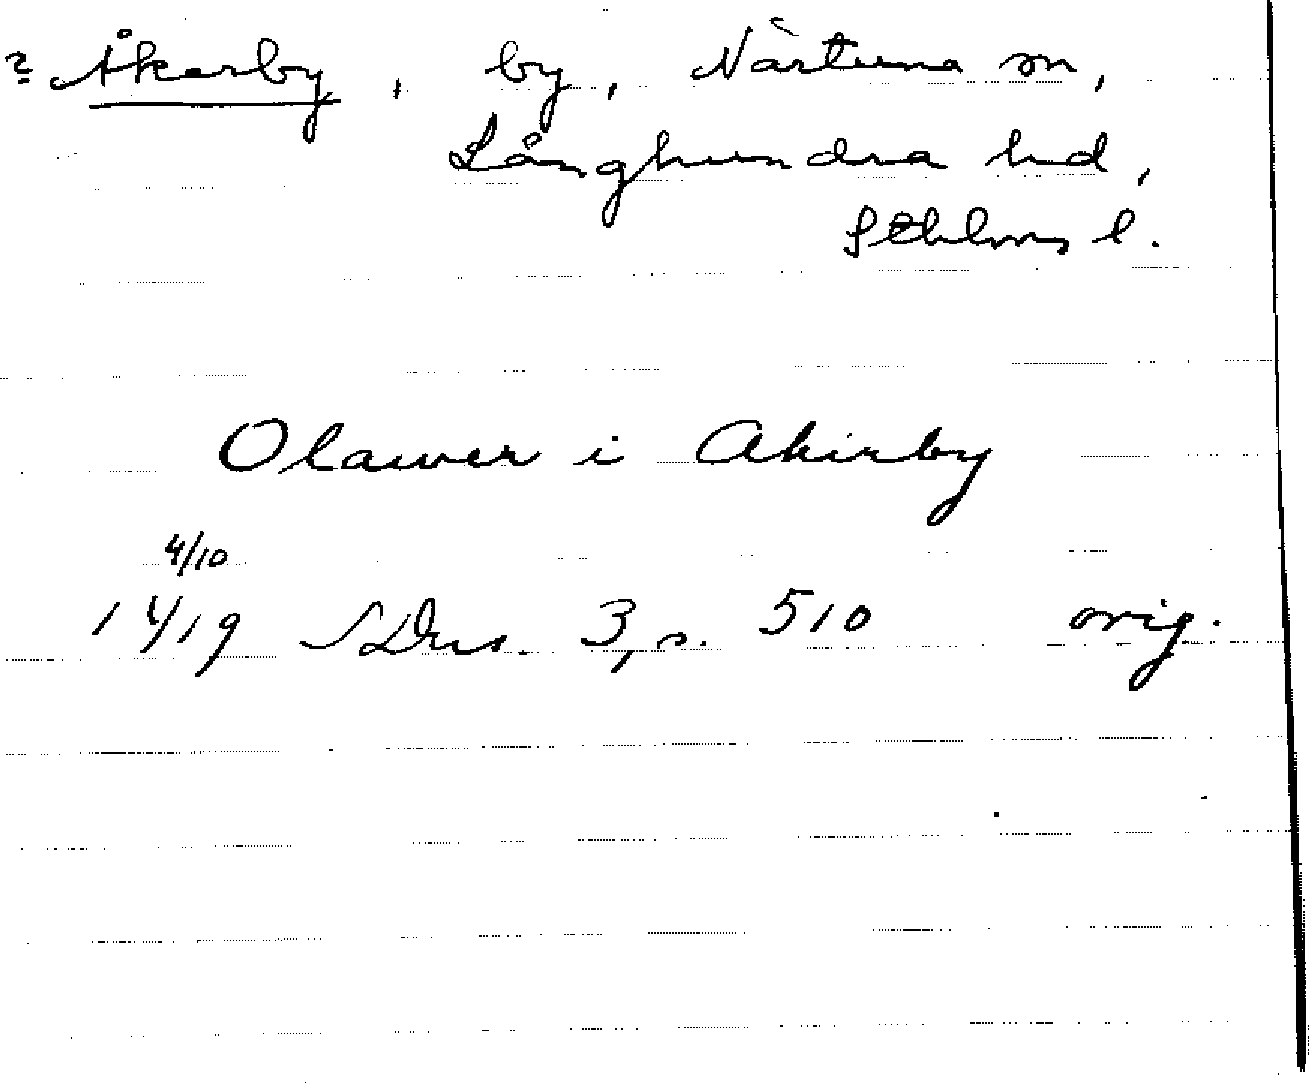 ? Åkerby, by, Närtuna sn,
Långhundra hd,
Sthlms l.
Olawer i Akirby
4/10
1419 SDns. 3, s. 510 orig.